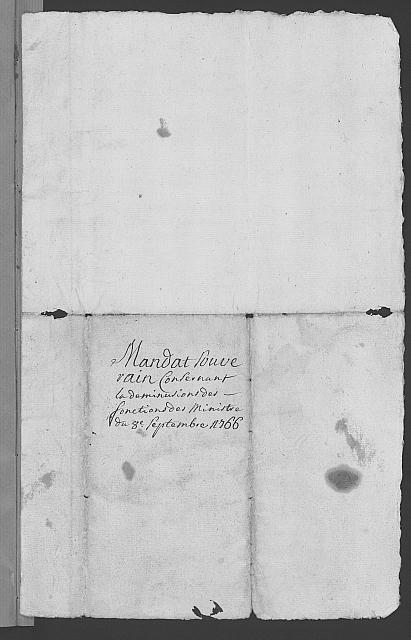 Mandat souve
rain Consernant
la deminusions des —
fonctions des Ministre
du 3e Septembre 1766